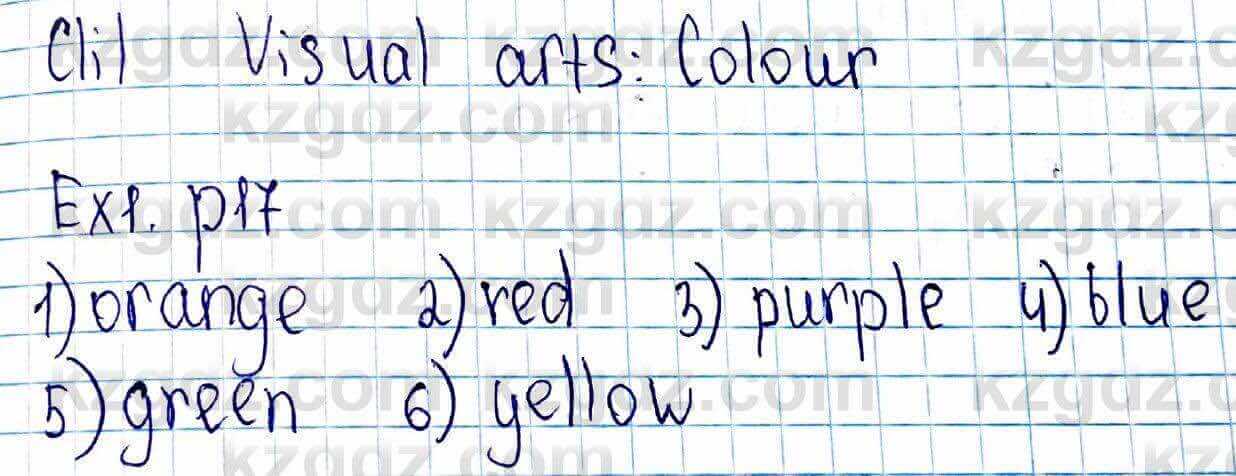 Clil Visual arts: Colour
Ex1. p17
1) orange 2) red 3) purple 4) blue
5) green 6) yellow